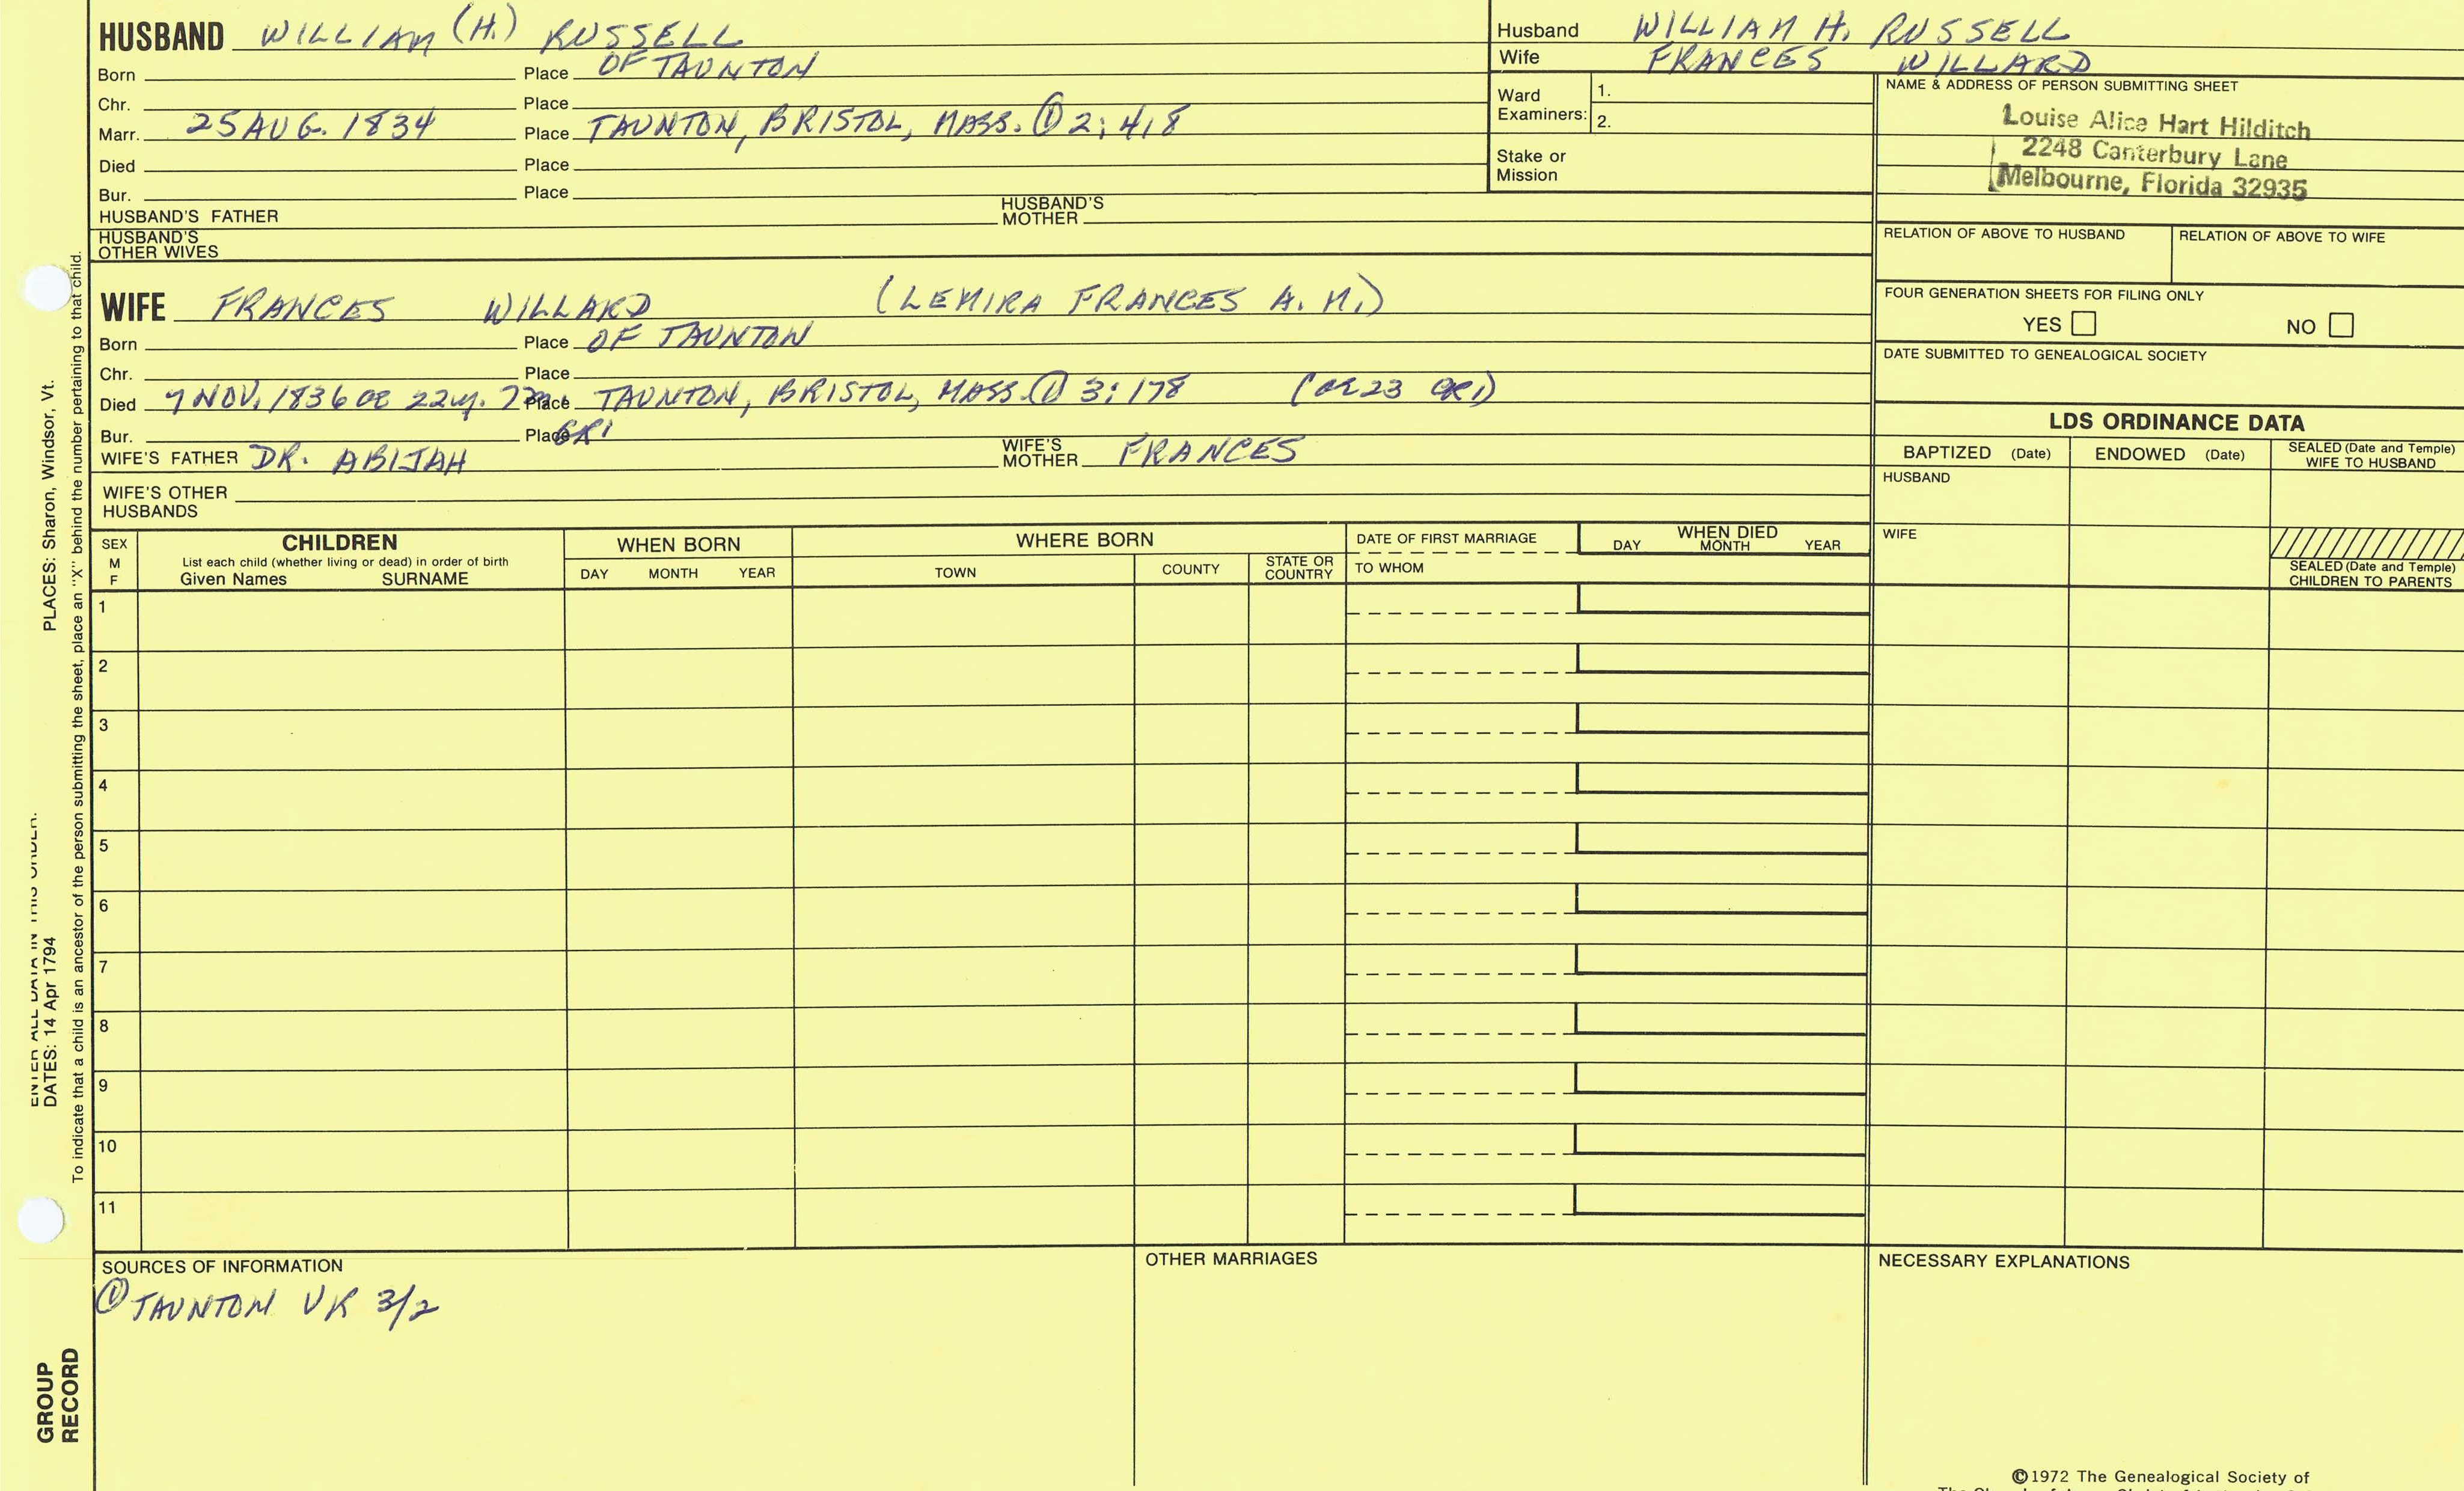 HUSBAND WILLIAM (H.) RUSSELL
Born Place OF TAUNTON
Chr. Place
Marr. 25 AUG. 1834 Place TAUNTON, BRISTOL, MASS. ① 2:418
Died Place
Bur. Place
HUSBAND'S FATHER HUSBAND'S MOTHER
HUSBAND'S OTHER WIVES
Husband WILLIAM H. RUSSELL
Wife FRANCES WILLARD
Ward Examiners: 1.
2.
Stake or Mission
NAME & ADDRESS OF PERSON SUBMITTING SHEET
Louise Alice Hart Hilditch
2248 Canterbury Lane
Melbourne, Florida 32935
RELATION OF ABOVE TO HUSBAND RELATION OF ABOVE TO WIFE
FOUR GENERATION SHEETS FOR FILING ONLY
YES NO
DATE SUBMITTED TO GENEALOGICAL SOCIETY
WIFE FRANCES WILLARD (LEMIRA FRANCES A. M.)
Born Place OF TAUNTON
Chr. Place
Died 7 NOV. 1836 22y. Place TAUNTON, BRISTOL, MASS. ① 3:178 (OR 23 GR1)
Bur. Place GR1
WIFE'S FATHER DR. ABIJAH WIFE'S MOTHER FRANCES
WIFE'S OTHER HUSBANDS
LDS ORDINANCE DATA
BAPTIZED (Date) ENDOWED (Date) SEALED (Date and Temple) WIFE TO HUSBAND
HUSBAND
WIFE
SEALED (Date and Temple) CHILDREN TO PARENTS
SEX M F
CHILDREN
List each child (whether living or dead) in order of birth
Given Names SURNAME
WHEN BORN
DAY MONTH YEAR
WHERE BORN
TOWN COUNTY STATE OR COUNTRY
DATE OF FIRST MARRIAGE
TO WHOM
WHEN DIED
DAY MONTH YEAR
1
2
3
4
5
6
7
8
9
10
11
SOURCES OF INFORMATION
① TAUNTON VR 3/2
OTHER MARRIAGES
NECESSARY EXPLANATIONS
©1972 The Genealogical Society of
PLACES: Sharon, Windsor, Vt.
DATES: 14 Apr 1794
To indicate that a child is an ancestor of the person submitting the sheet, place an "X" behind the number pertaining to that child.
GROUP
RECORD